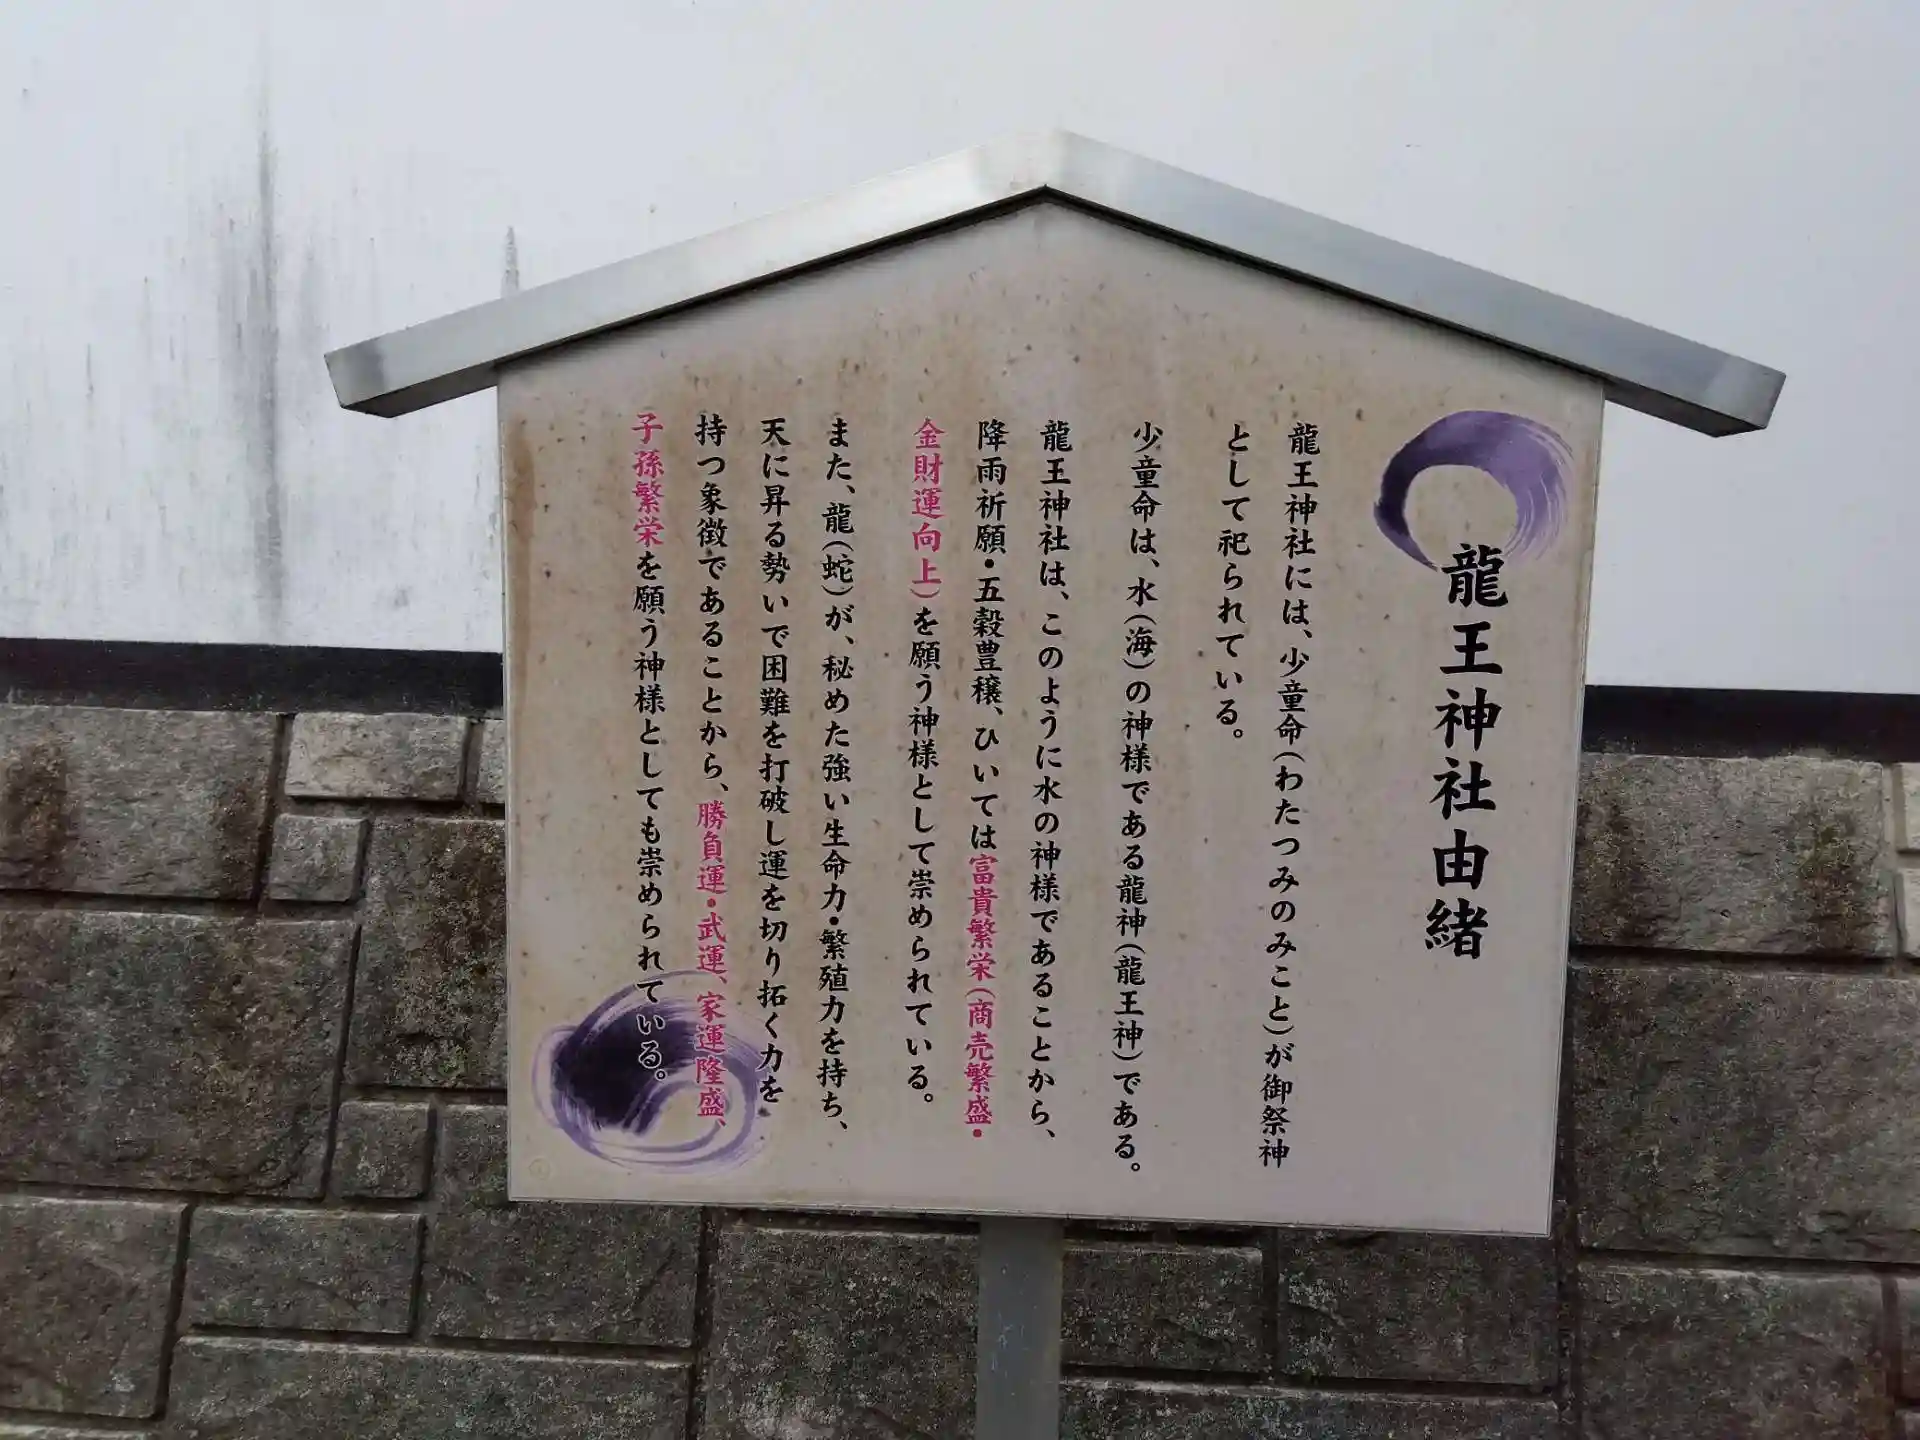 龍王神社由緒
龍王神社には、少童命(わたつみのみこと)が御祭神
として祀られている。
少童命は、水(海)の神様である龍神(龍王神)である。
龍王神社は、このように水の神様であることから、
降雨祈願・五穀豊穣、ひいては富貴繁栄(商売繁盛・
金財運向上)を願う神様として崇められている。
また、龍(蛇)が、秘めた強い生命力・繁殖力を持ち、
天に昇る勢いで困難を打破し運を切り拓く力を
持つ象徴であることから、勝負運・武運、家運隆盛、
子孫繁栄を願う神様としても崇められている。